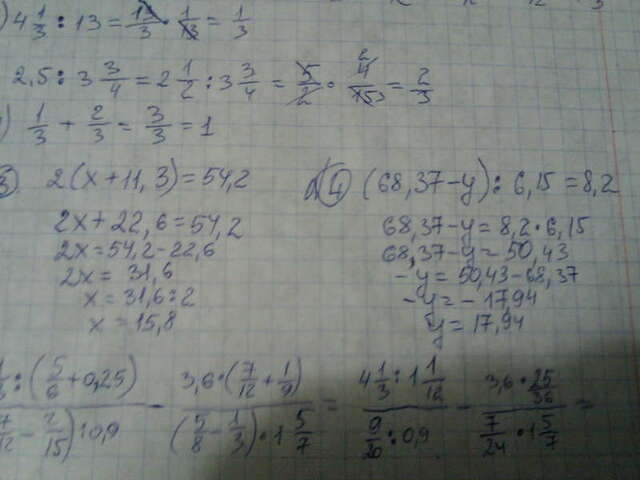 ) 4 1/3 : 13 = 13/3 · 1/13 = 1/3
2,5 : 3 3/4 = 2 1/2 : 3 3/4 = 5/2 · 4/15 = 2/3
) 1/3 + 2/3 = 3/3 = 1
③ 2(x + 11,3) = 54,2
2x + 22,6 = 54,2
2x = 54,2 - 22,6
2x = 31,6
x = 31,6 : 2
x = 15,8
④ (68,37 - y) : 6,15 = 8,2
68,37 - y = 8,2 · 6,15
68,37 - y = 50,43
- y = 50,43 - 68,37
- y = - 17,94
y = 17,94
: (5/6 + 0,25)
3,6 · (7/12 + 1/9)
4 1/3 : 1 1/12
- 2/15) : 0,9
(5/8 - 1/3) · 1 5/7
: 0,9
7/24 · 1 5/7